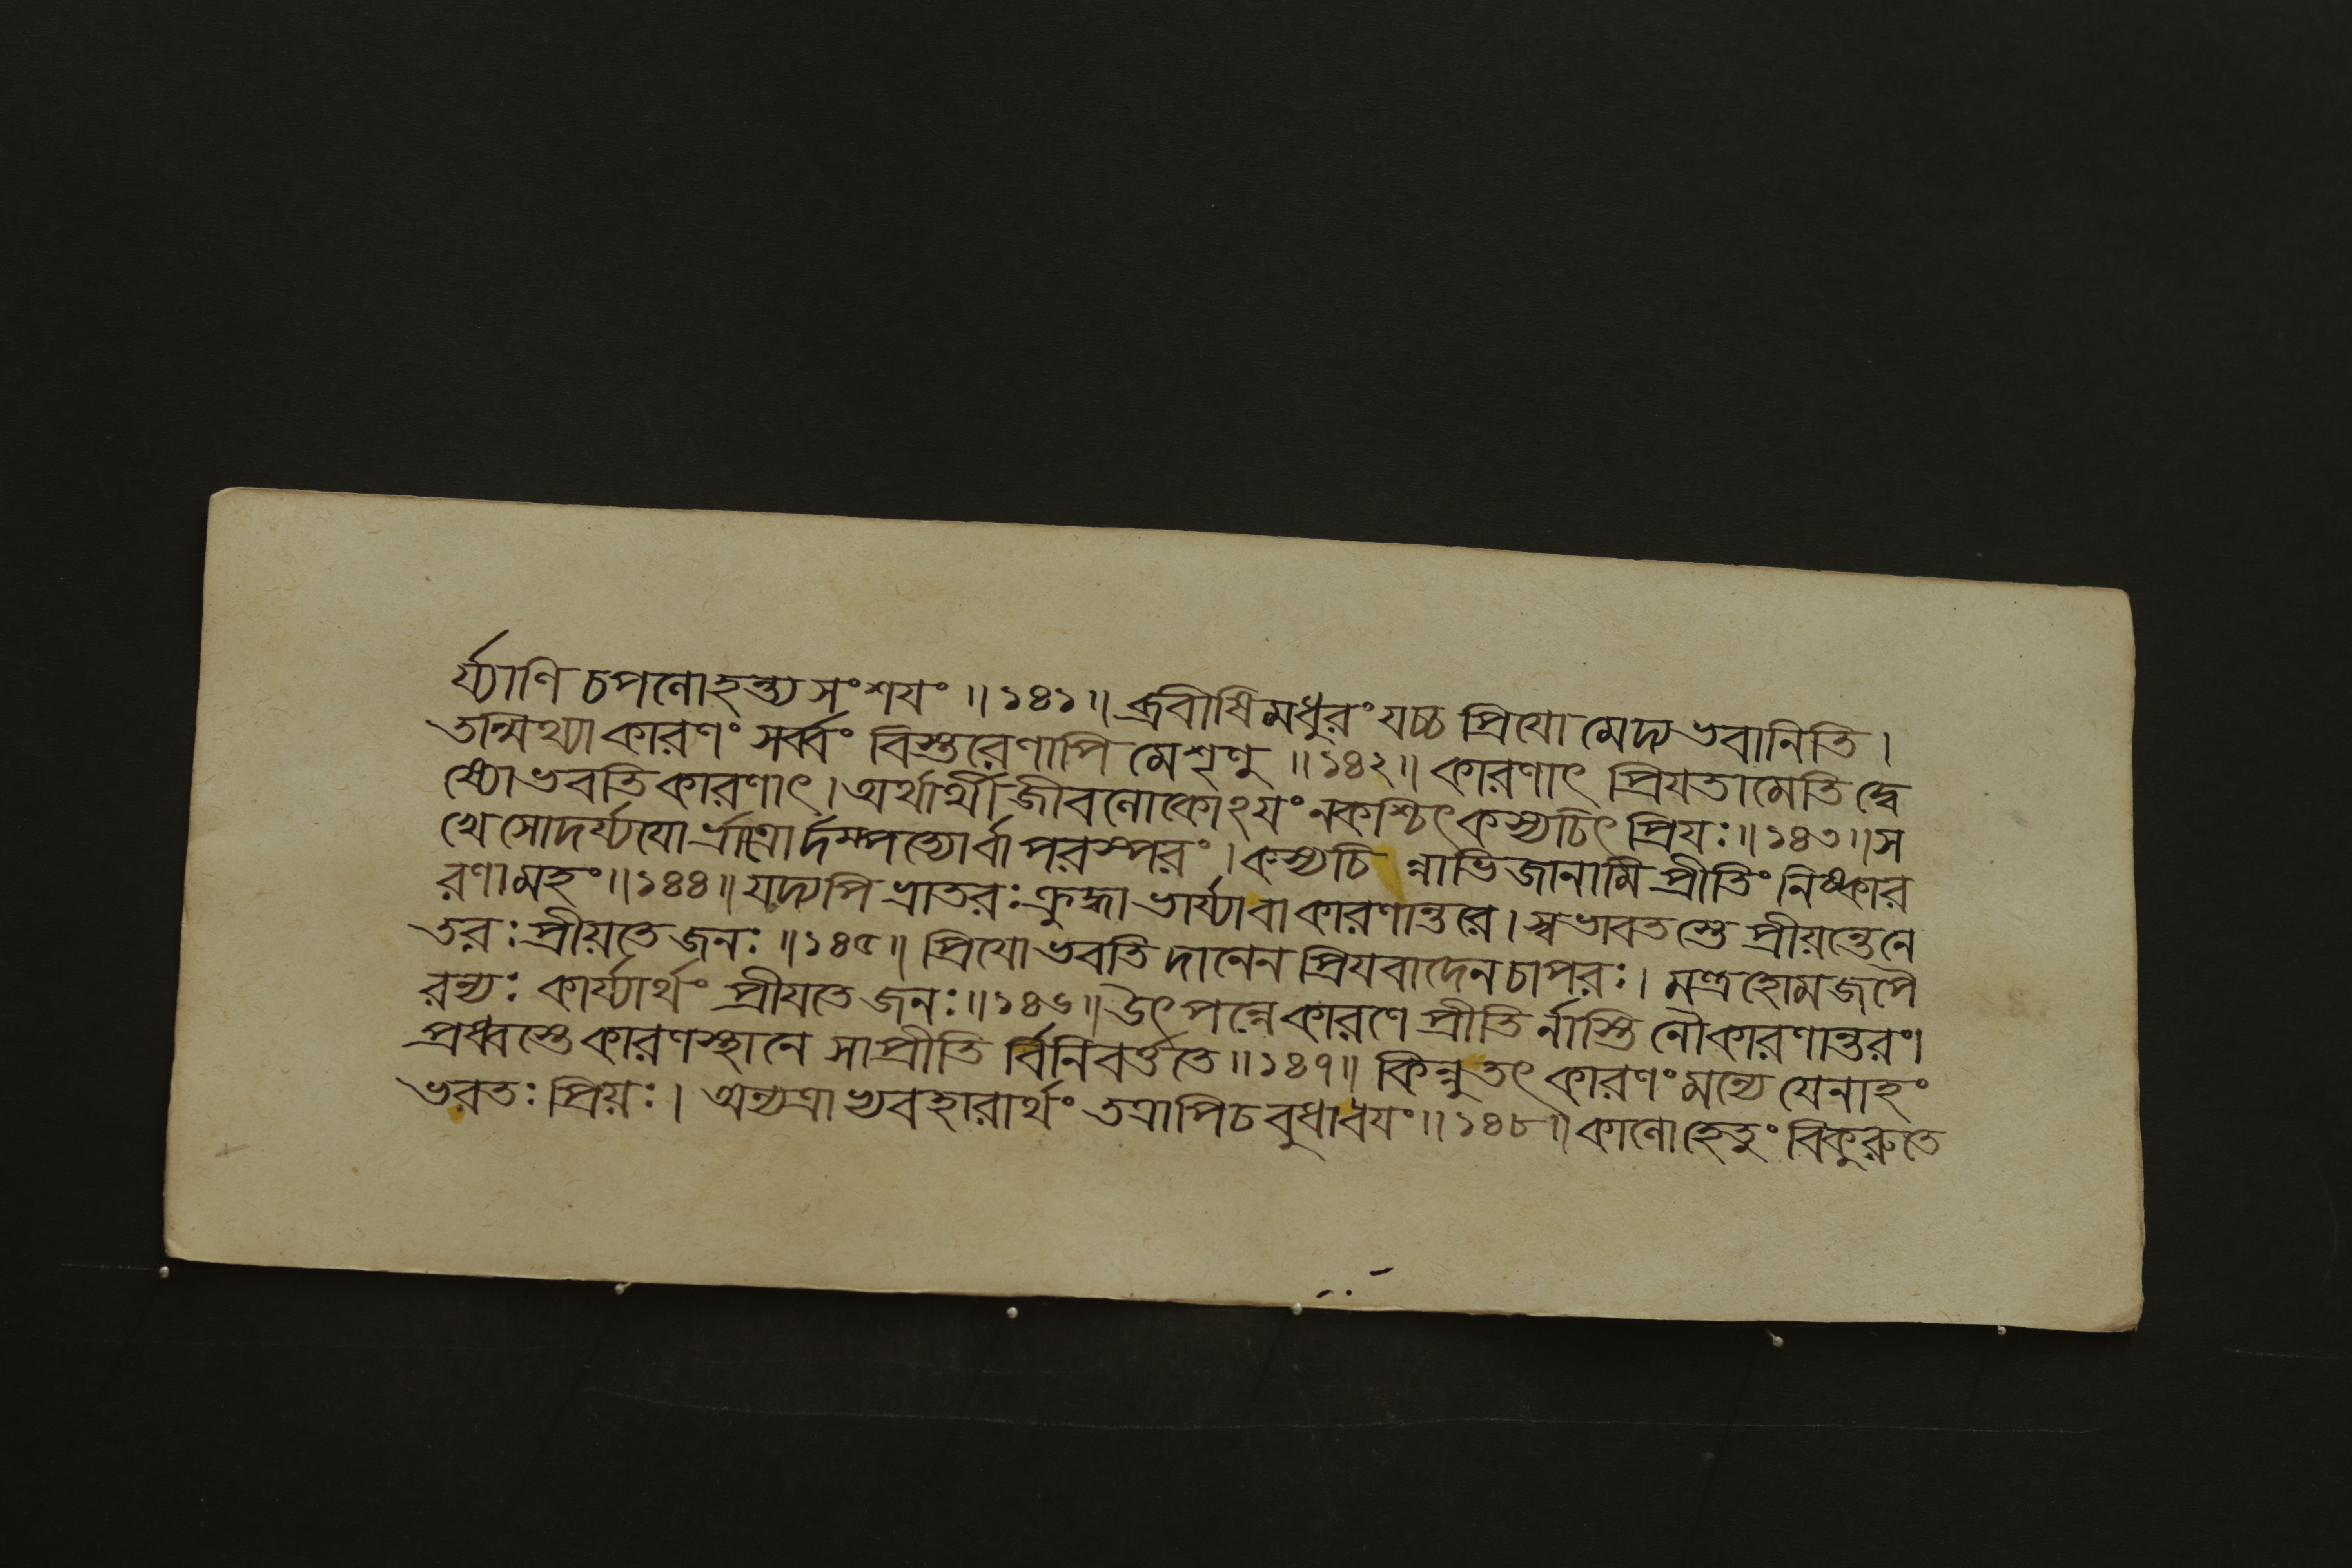 র্য্যাণি চপলোহন্ত্য সংশযং ॥ ১৪১ ॥ ব্রবীষি মধুরং যচ্চ প্রিযো মেদ্য ভবানিতি ।
তন্মিথ্যা কারণং সর্ব্বং বিস্তরেণাপি মে শৃণু ॥ ১৪২ ॥ কারণাৎ প্রিযতামেতি দ্বে
ষ্যো ভবতি কারণাৎ । অর্থার্থী জীবলোকোঽযং নকশ্চিৎ কস্যচিৎ প্রিযঃ ॥ ১৪৩ ॥ স
খে সোদর্য্যযো র্ভ্রাত্রো র্দম্পত্যোর্বা পরস্পরং । কস্যচি ন্নাভিজানামি প্রীতিং নিষ্কার
রণামহং ॥ ১৪৪ ॥ যদ্যপি ভ্রাতরঃ ক্রুদ্ধা ভার্য্যাবা কারণান্তরে । স্বভাবতস্তে প্রীয়ন্তে নে
তরঃ প্রীয়তে জনঃ ॥ ১৪৫ ॥ প্রিযো ভবতি দানেন প্রিযবাদেন চাপরঃ । মন্ত্রহোমজপৈ
রন্যঃ কার্য্যার্থং প্রীযতে জনঃ ॥ ১৪৬ ॥ উৎপন্নে কারণে প্রীতি র্নাস্তি নৌকারণান্তরং।
প্রধ্বস্তে কারণস্থানে সাপ্রীতি র্বিনিবর্ত্ততে ॥ ১৪৭ ॥ কিন্নুতৎ কারণং মন্যে যেনাহং
ভবতঃ প্রিয়ঃ । অন্যত্রাভ্যবহারার্থং তত্রাপিচ বুধাবযং ॥ ১৪৮ ॥ কালোহেতুং বিকুরুতে